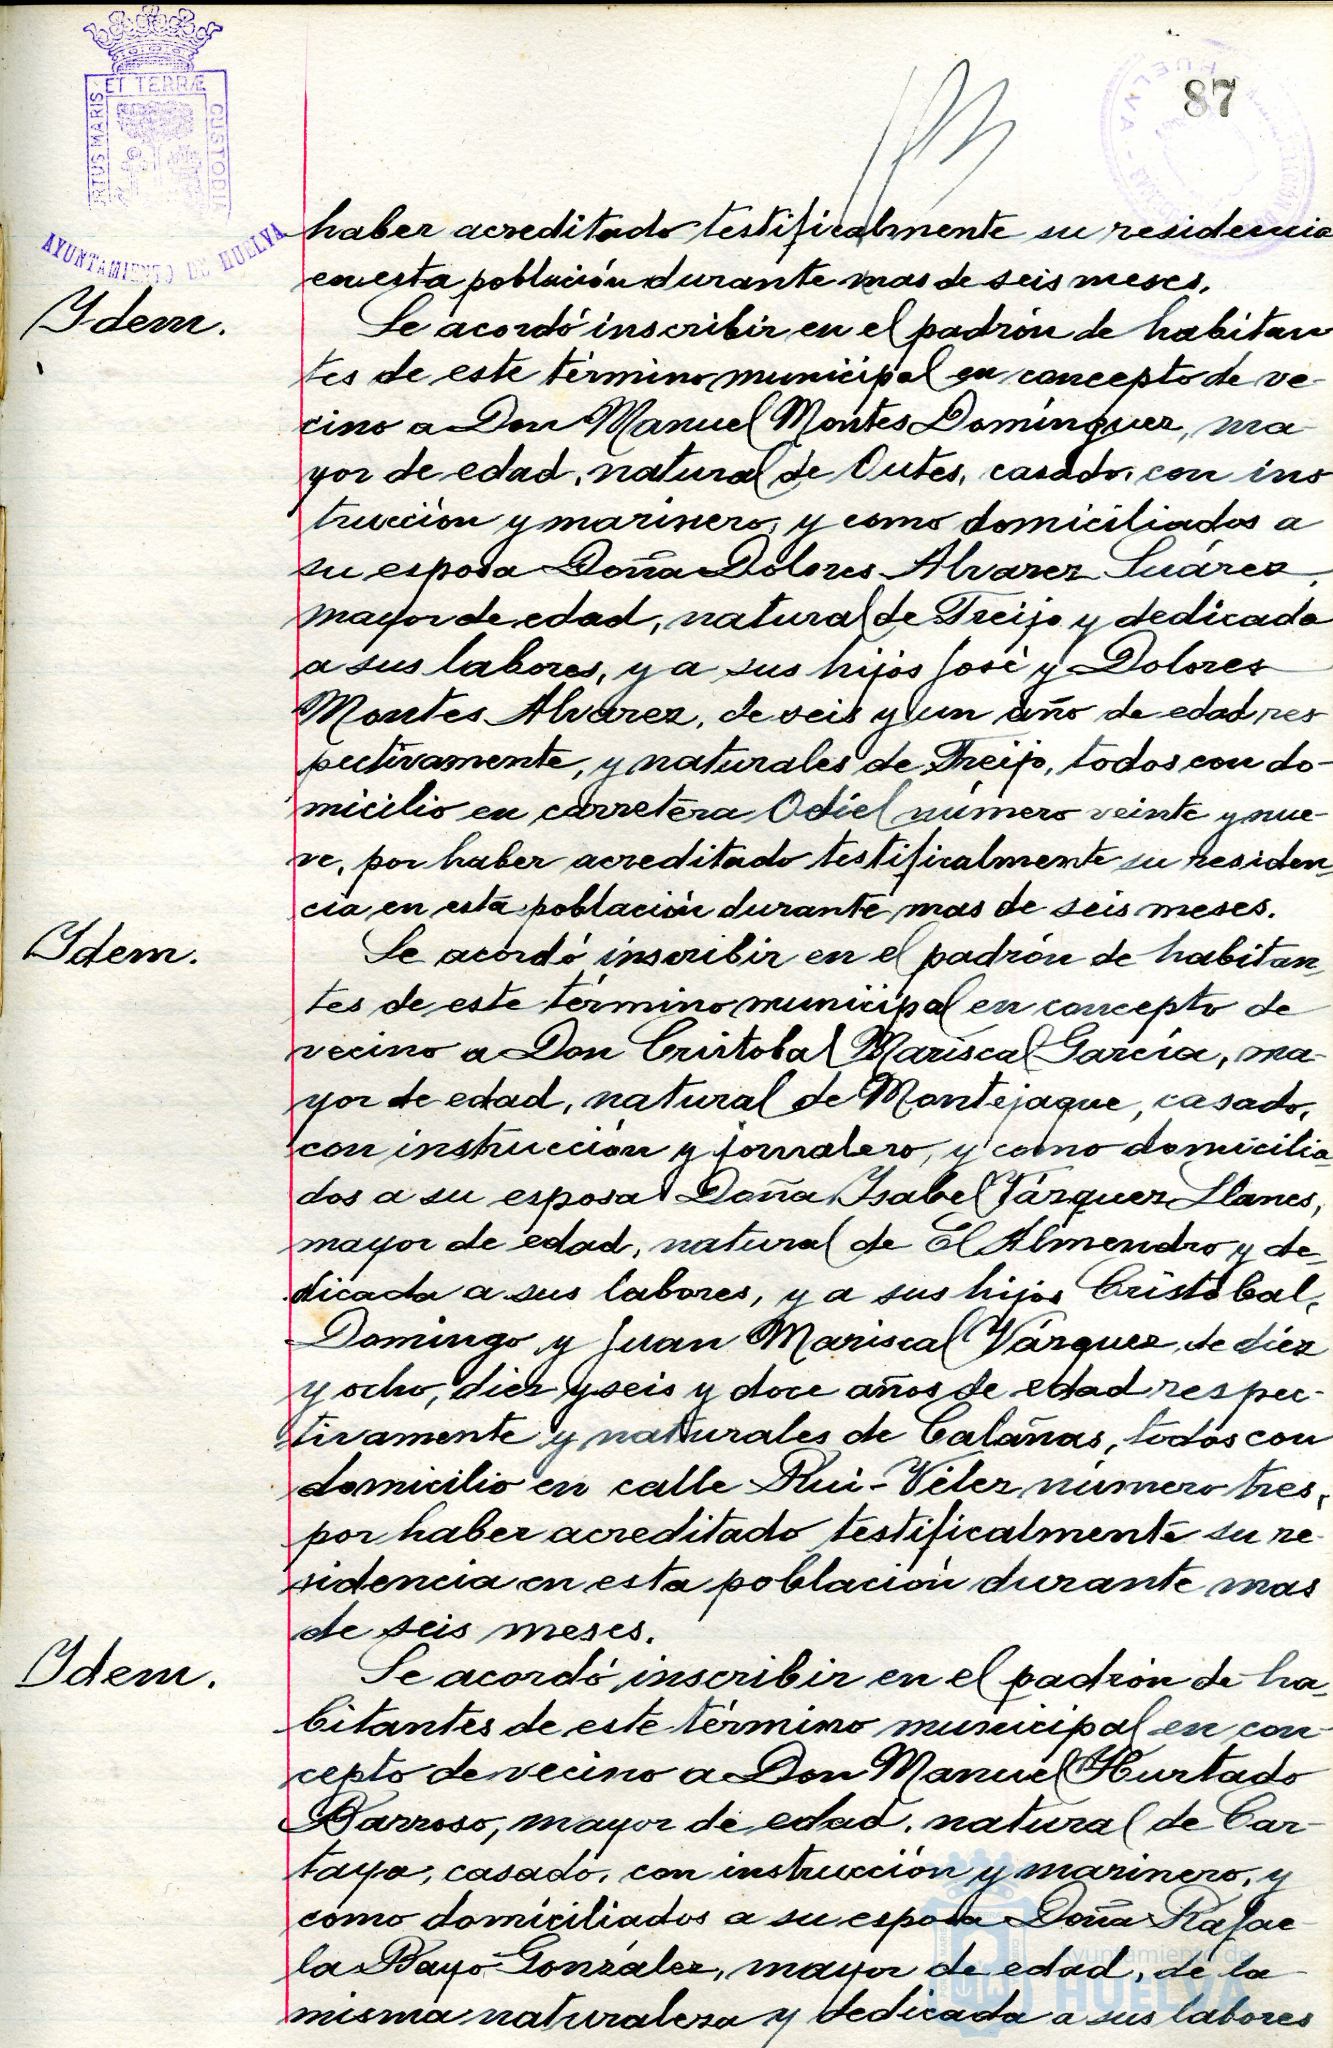 87
ET TERRÆ
RTUS MARIS
CUSTODI
AYUNTAMIENTO DE HUELVA
HUELVA
haber acreditado testificalmente su residencia
en esta población durante mas de seis meses.
Idem.
Se acordó inscribir en el padrón de habitan
tes de este término municipal en concepto de ve-
cino a Don Manuel Montes Domínguez, ma-
yor de edad, natural de Outes, casado, con ins
trucción y marinero, y como domiciliados a
su esposa Doña Dolores Alvarez Suárez,
mayor de edad, natural de Freijo y dedicada
a sus labores, y a sus hijos José y Dolores
Montes Alvarez, de seis y un año de edad res
pectivamente, y naturales de Freijo, todos con do-
micilio en carretera Odiel número veinte y nue-
ve, por haber acreditado testificalmente su residen
cia en esta población durante mas de seis meses.
Idem.
Se acordó inscribir en el padrón de habitan
tes de este término municipal en concepto de
vecino a Don Cristobal Mariscal García, ma-
yor de edad, natural de Montejaque, casado,
con instrucción y jornalero, y como domicilia
dos a su esposa Doña Isabel Vázquez Llanes,
mayor de edad, natural de El Almendro y de-
dicada a sus labores, y a sus hijos Cristobal,
Domingo y Juan Mariscal Vázquez, de diez
y ocho, diez y seis y doce años de edad respec-
tivamente y naturales de Calañas, todos con
domicilio en calle Rui-Vélez número tres,
por haber acreditado testificalmente su re-
sidencia en esta población durante mas
de seis meses.
Idem.
Se acordó inscribir en el padrón de ha-
bitantes de este término municipal en con-
cepto de vecino a Don Manuel Hurtado
Barroso, mayor de edad, natural de Car-
taya, casado, con instrucción y marinero, y
como domiciliados a su esposa Doña Rafae-
la Bayo González, mayor de edad, de la
misma naturaleza y dedicada a sus labores
Ayuntamiento de
HUELVA